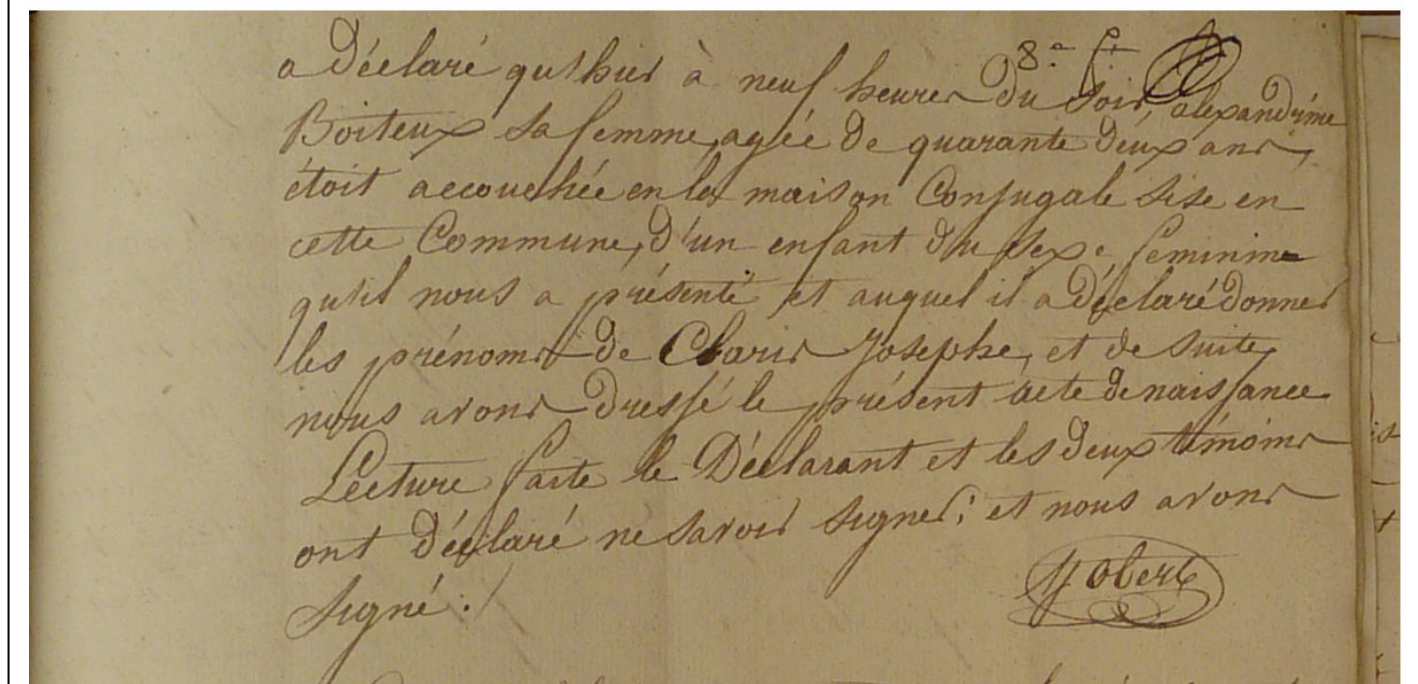 8.e f.t
a Déclaré qu'hier à neuf heures du soir, alexandrine
Boiteux sa femme, agée de quarante deux ans,
étoit accouchée en la maison Conjugale sise en
cette Commune, d'un enfant du sexe feminine
qu'il nous a présenté et auquel il a déclaré donner
les prénoms de Claris Josephe, et de suite,
nous avons dressé le présent acte de naissance
Lecture faite le Déclarant et les deux témoins
ont déclaré ne savoir signer; et nous avons
signé ./
Yobert